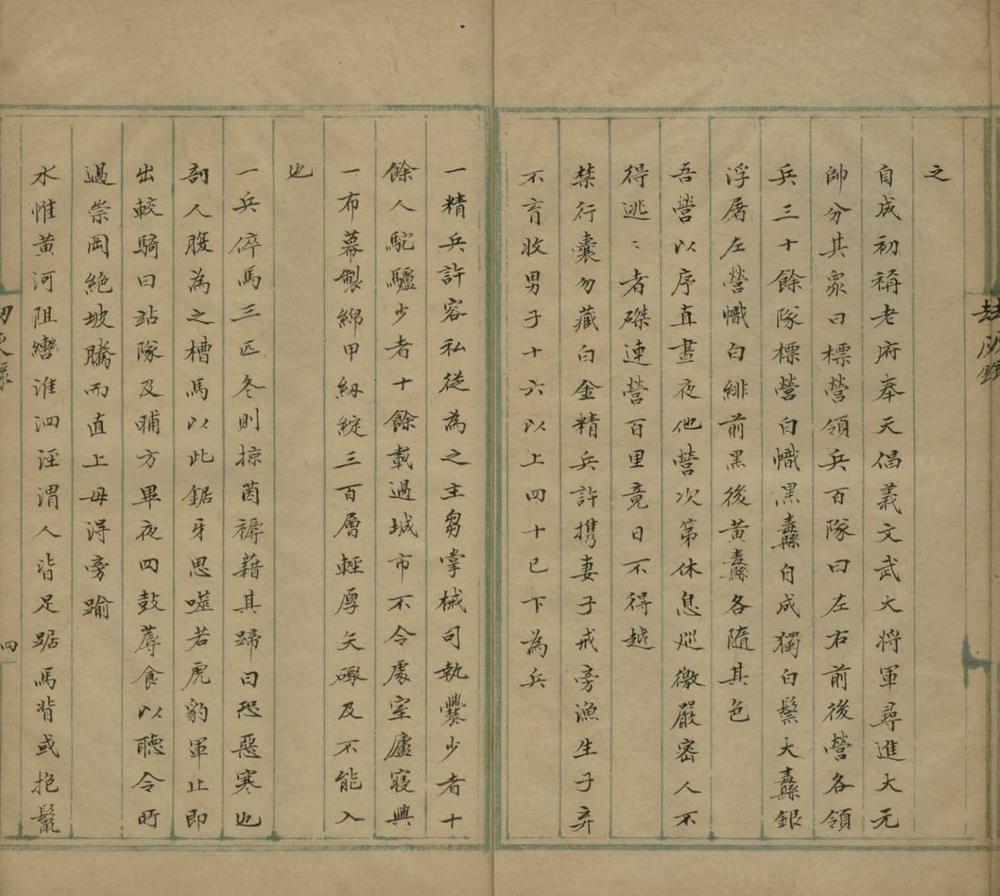 之
自成初稱老府奉天倡義文武大將軍尋進大元
帥分其衆曰標營領兵百隊曰左右前後營各領
兵三十餘隊標營白幟黑纛自成獨白鬃大纛銀
浮屠左營幟白緋前黑後黃纛各隨其色
吾營以序直晝夜他營次第休息巡徼嚴密人不
得逃〻者磔連營百里竟日不得越
禁行囊勿藏白金精兵許攜妻子戒旁漁生子弃
不育收男子十六以上四十已下為兵
一精兵許容私從為之主芻掌械司執爨少者十
餘人駝驢少者十餘載過城市不令處室廬寢興
一布幕製綿甲紉綻三百層輕厚矢礮及不能入
也
一兵倅馬三匹冬則掠茵褥藉其蹄曰恐惡寒也
剖人腹為之槽馬以此鋸牙思噬若虎豹軍止即
出較騎曰站隊及晡方畢夜四鼓蓐食以聽令所
過崇岡絶坡騰而直上毋得旁踰
水惟黃河阻轡淮泗涇渭人皆足踞馬背或抱鬣
四